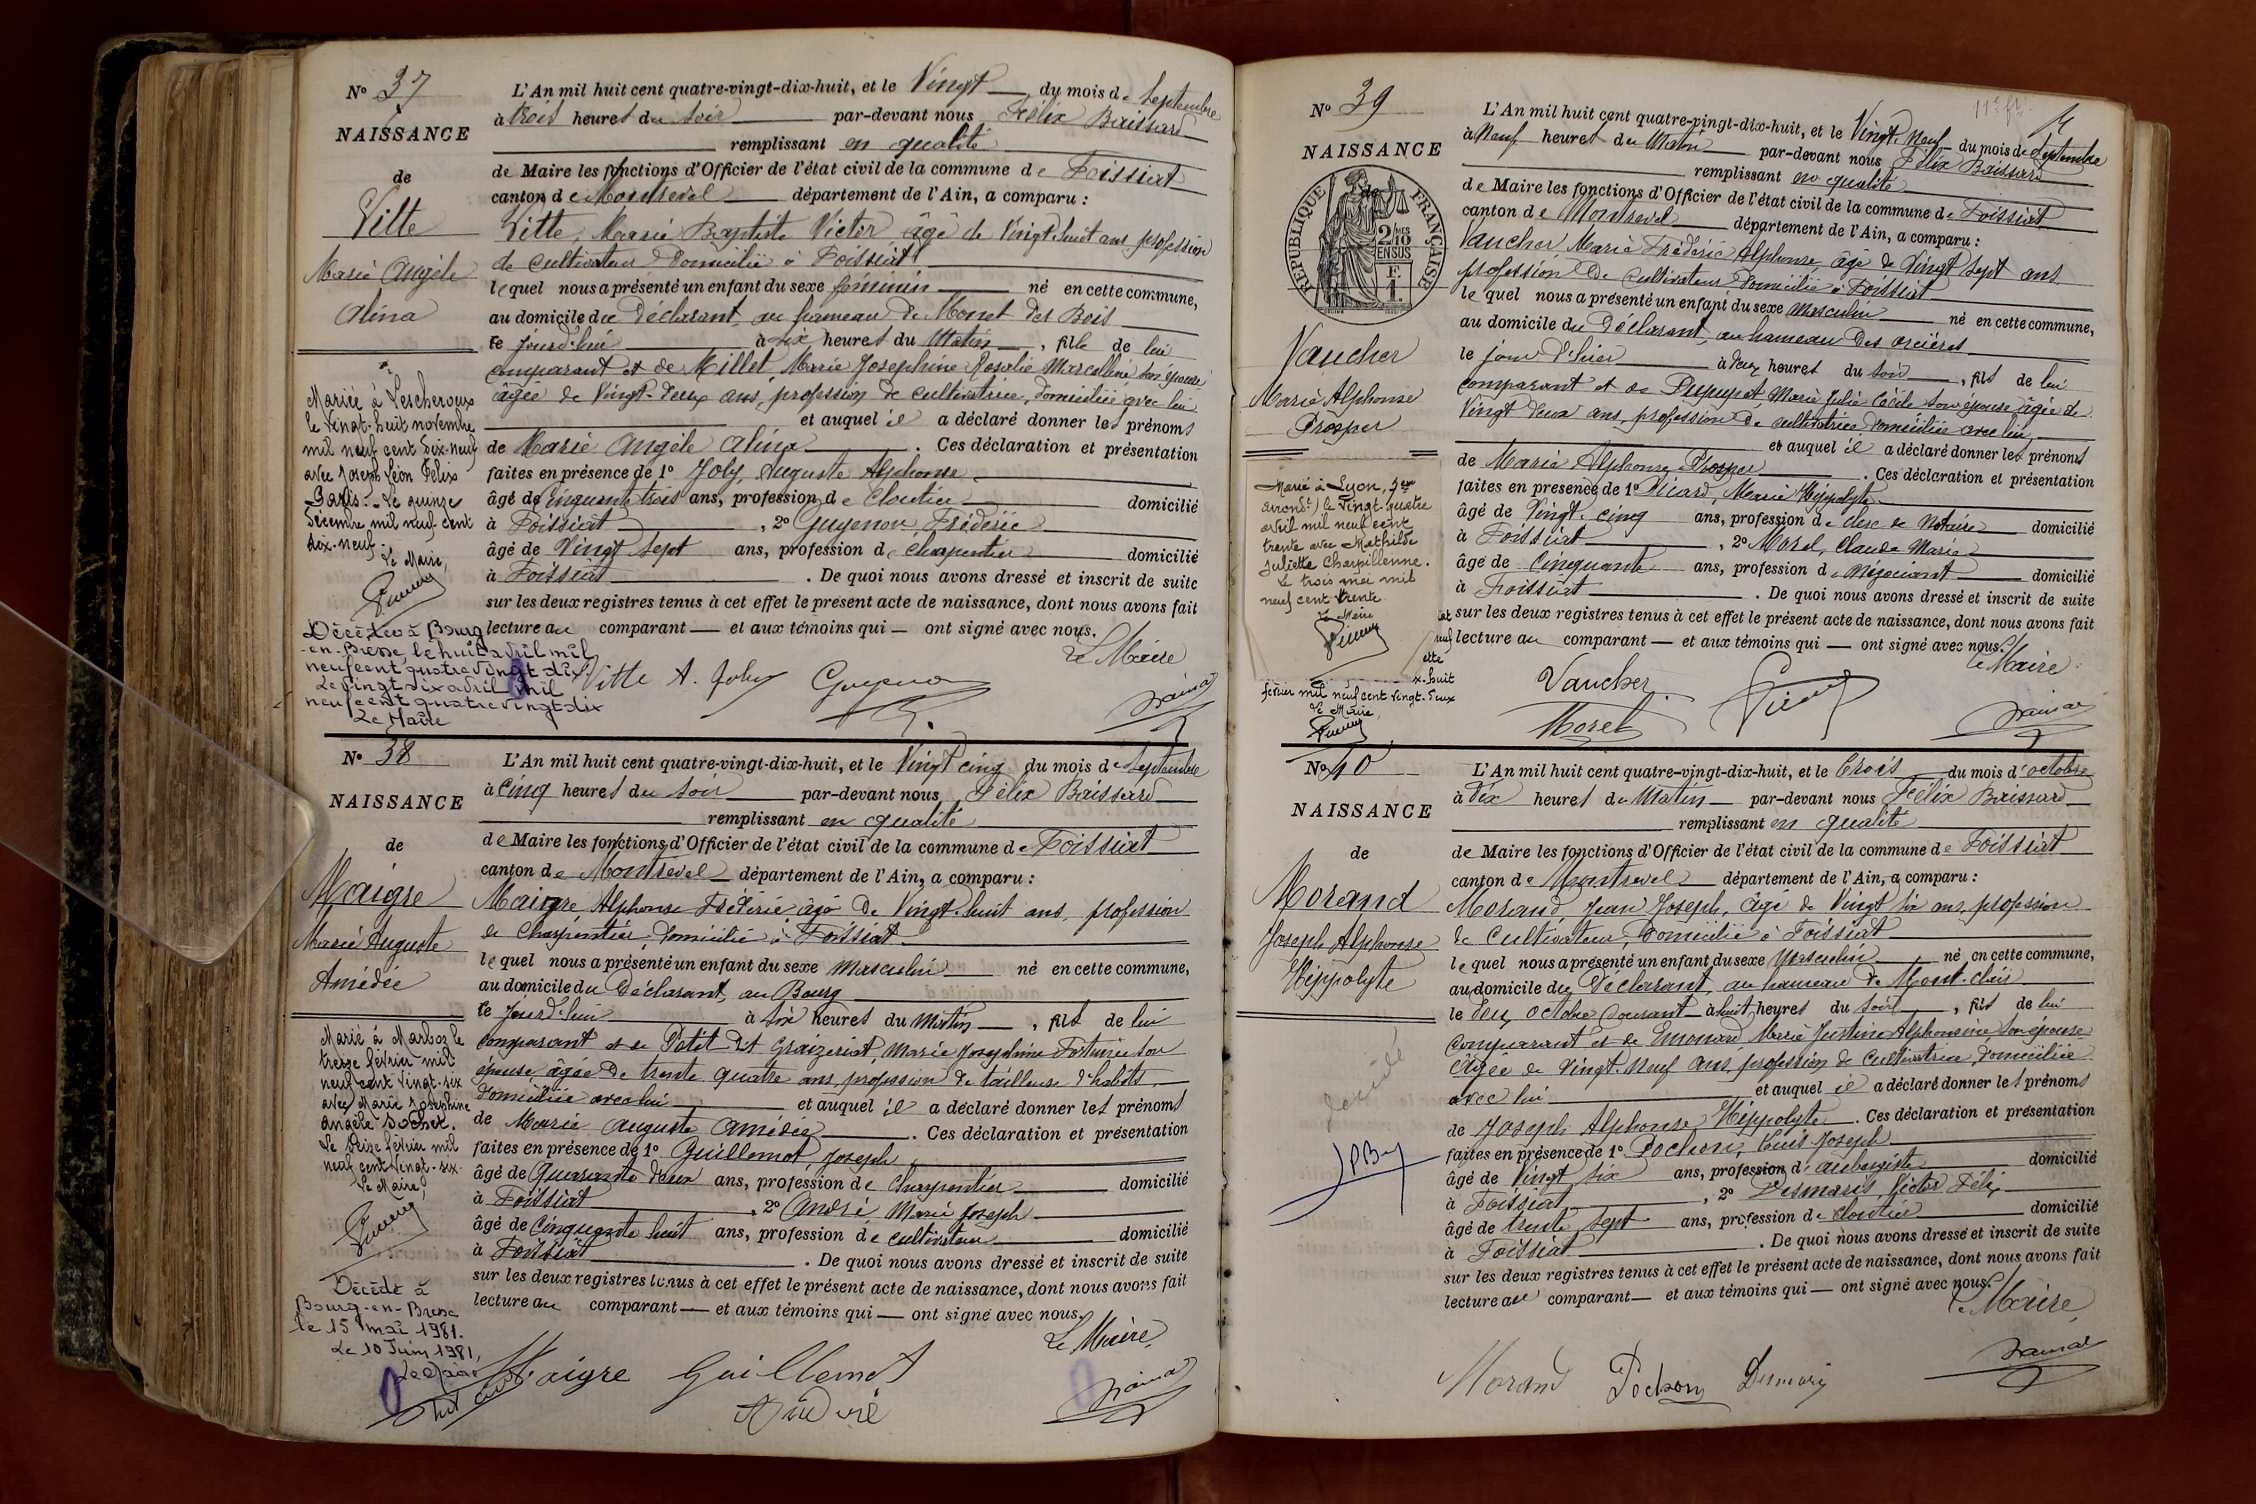 N° 37
NAISSANCE
de
Vitte
Marie Angèle
Alina
Mariée à Lescheroux
le vingt-huit novembre
mil neuf cent dix-neuf
avec Joseph Léon Félix
Le quinze
décembre mil neuf cent
dix-neuf.
Le Maire,
Décédée à Bourg
-en-Bresse, le huit avril mil
neuf cent quatre vingt dix
Le vingt six avril mil
neuf cent quatre vingt dix
Le Maire
L'An mil huit cent quatre-vingt-dix-huit, et le Vingt du mois de Septembre
à trois heures du soir par-devant nous Félix Baissard
remplissant en qualité
de Maire les fonctions d'Officier de l'état civil de la commune de Foissiat
canton de Montrevel département de l'Ain, a comparu :
Vitte, Marie Baptiste Victor âgé de Vingt-huit ans, profession
de cultivateur domicilié à Foissiat
lequel nous a présenté un enfant du sexe féminin né en cette commune,
au domicile du Déclarant, au hameau de Monet des Bois
le jourd'hui à six heures du Matin, fille de lui
comparant et de Millet Marie Josephine Rosalie Marcelline son épouse
âgée de Vingt-deux ans, profession de cultivatrice, domiciliée avec lui
et auquel il a déclaré donner les prénoms
de Marie Angèle Alina. Ces déclaration et présentation
faites en présence de 1° Joly, Auguste Alphonse
âgé de Cinquante trois ans, profession de Cloutier domicilié
à Foissiat, 2° Guyenon Fréderic
âgé de Vingt sept ans, profession de charpentier domicilié
à Foissiat. De quoi nous avons dressé et inscrit de suite
sur les deux registres tenus à cet effet le présent acte de naissance, dont nous avons fait
lecture au comparant et aux témoins qui ont signé avec nous.
Le Maire
Vitte A. Joly
N° 38
NAISSANCE
de
Maigre
Marie Auguste
Amédée
Marié à Marboz le
treize février mil
neuf cent vingt-six
avec Marie Josephine
Angèle Sochet.
Le seize février mil
neuf cent vingt-six
Le Maire,
Décédé à
Bourg-en-Bresse
le 15 mai 1981.
Le 10 Juin 1981,
Le Maire
L'An mil huit cent quatre-vingt-dix-huit, et le Vingt cinq du mois de Septembre
à Cinq heures du soir par-devant nous Félix Baissard
remplissant en qualité
de Maire les fonctions d'Officier de l'état civil de la commune de Foissiat
canton de Montrevel département de l'Ain, a comparu :
Maigre Alphonse Fréderic âgé de Vingt-huit ans, profession
de Charpentier, domicilié à Foissiat
lequel nous a présenté un enfant du sexe Masculin né en cette commune,
au domicile du Déclarant, au Bourg
le jourd'hui à six heures du Matin, fils de lui
comparant et de Petit dit Graizeriat, Marie Josephine Fortunée son
épouse, âgée de trente quatre ans, profession de tailleuse d'habits,
domiciliée avec lui et auquel il a déclaré donner les prénoms
de Marie Auguste Amédée. Ces déclaration et présentation
faites en présence de 1° Guillemot, Joseph
âgé de Quarante deux ans, profession de Charpentier domicilié
à Foissiat, 2° André, Marie Joseph
âgé de Cinquante huit ans, profession de cultivateur domicilié
à Foissiat. De quoi nous avons dressé et inscrit de suite
sur les deux registres tenus à cet effet le présent acte de naissance, dont nous avons fait
lecture au comparant et aux témoins qui ont signé avec nous.
Le Maire,
Maigre Guillemot
André
N° 39
NAISSANCE
RÉPUBLIQUE FRANÇAISE
2/10
EN SUS
F
1
Vaucher
Marie Alphonse
Prosper
Marié à Lyon,
arrondt) le vingt-quatre
avril mil neuf cent
trente avec Mathilde
Juliette Charpillenne.
Le trois mai mil
neuf cent trente
Le Maire
x-huit
février mil neuf cent vingt-deux
Le Maire,
L'An mil huit cent quatre-vingt-dix-huit, et le Vingt-neuf du mois de Septembre
à Neuf heures du Matin par-devant nous Félix Baissard
remplissant en qualité
de Maire les fonctions d'Officier de l'état civil de la commune de Foissiat
canton de Montrevel département de l'Ain, a comparu :
Vaucher Marie Fréderic Alphonse âgé de Vingt sept ans
profession de cultivateur domicilié à Foissiat
lequel nous a présenté un enfant du sexe Masculin né en cette commune,
au domicile du Déclarant, au hameau des orcières
le jour d'hier à deux heures du soir, fils de lui
comparant et de Pupunat Marie Julie Cécile son épouse âgée de
Vingt deux ans, profession de cultivatrice domiciliée avec lui
et auquel il a déclaré donner les prénoms
de Marie Alphonse Prosper. Ces déclaration et présentation
faites en présence de 1° Picard, Marie Hippolyte
âgé de Vingt-cinq ans, profession de clerc de Notaire domicilié
à Foissiat, 2° Morel, Claude Marie
âgé de Cinquante ans, profession de Négociant domicilié
à Foissiat. De quoi nous avons dressé et inscrit de suite
sur les deux registres tenus à cet effet le présent acte de naissance, dont nous avons fait
lecture au comparant et aux témoins qui ont signé avec nous.
Le Maire
Vaucher
Morel
N° 40
NAISSANCE
de
Morand
Joseph Alphonse
Hippolyte
L'An mil huit cent quatre-vingt-dix-huit, et le Trois du mois d'octobre
à Dix heures du Matin par-devant nous Félix Baissard
remplissant en qualité
de Maire les fonctions d'Officier de l'état civil de la commune de Foissiat
canton de Montrevel département de l'Ain, a comparu :
Morand, Jean Joseph, âgé de Vingt six ans, profession
de cultivateur, domicilié à Foissiat
lequel nous a présenté un enfant du sexe Masculin né en cette commune,
au domicile du Déclarant, au hameau de Mont-clair
le deux octobre courant à huit heures du soir, fils de lui
comparant et de Emonard Marie Justine Alphonsine son épouse
âgée de Vingt-neuf ans, profession de cultivatrice, domiciliée
avec lui et auquel il a déclaré donner les prénoms
de Joseph Alphonse Hippolyte. Ces déclaration et présentation
faites en présence de 1° Pochon, Louis Joseph
âgé de Vingt six ans, profession d'aubergiste domicilié
à Foissiat, 2° Desmaris Victor Félix
âgé de trente sept ans, profession de Cloutier domicilié
à Foissiat. De quoi nous avons dressé et inscrit de suite
sur les deux registres tenus à cet effet le présent acte de naissance, dont nous avons fait
lecture au comparant et aux témoins qui ont signé avec nous.
Le Maire,
Morand Pochon